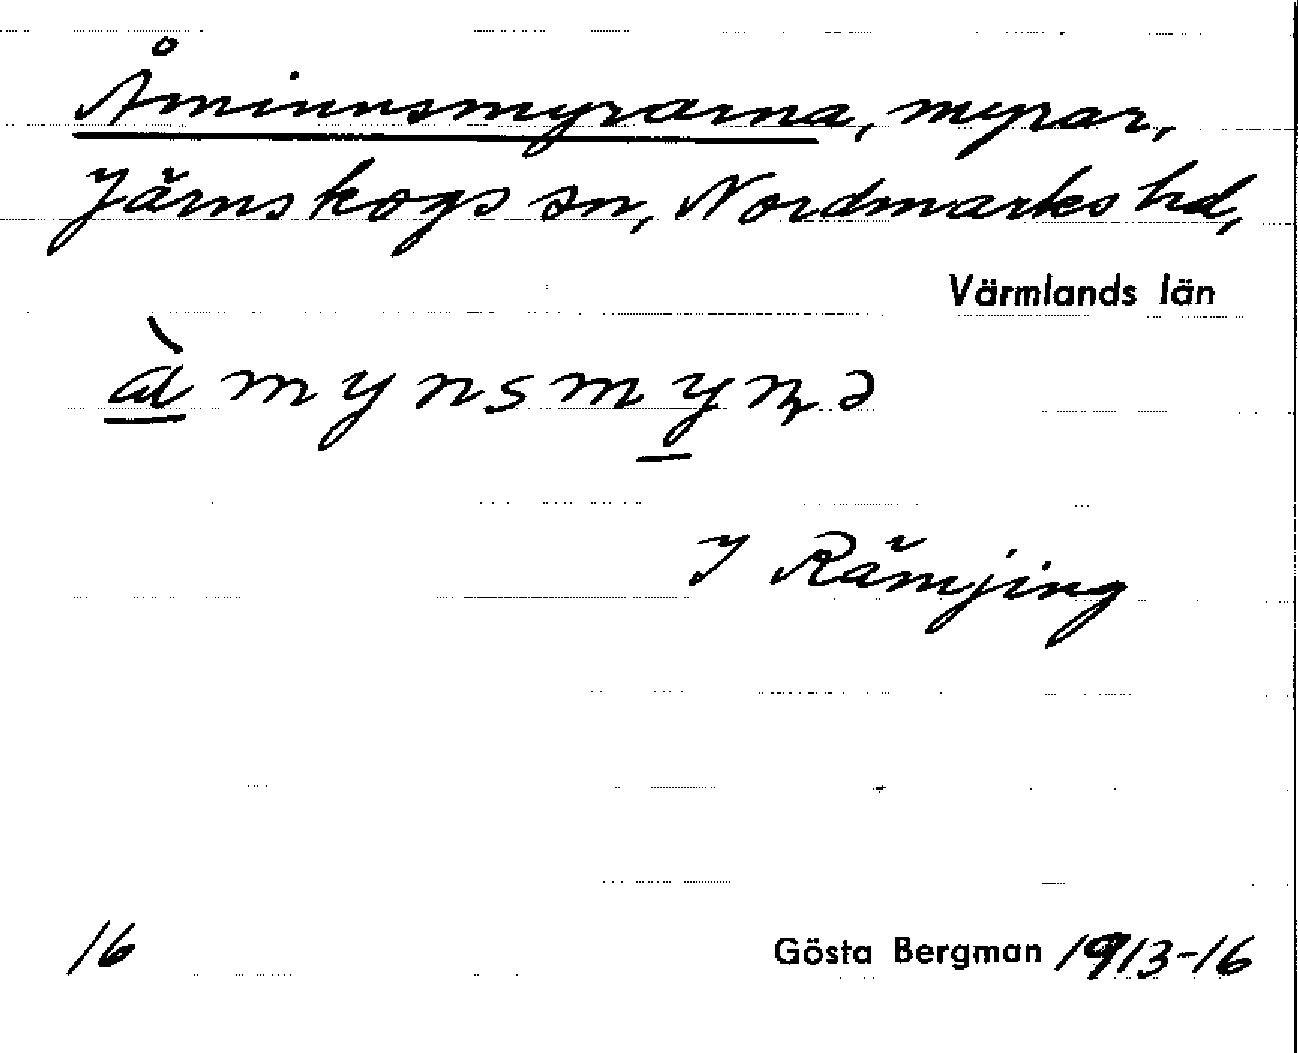 Åminnsmyrarna, myrar,
Järnskogs sn, Nordmarks hd,
Värmlands län
àmynsmyɳə
I Rämjing
16 Gösta Bergman 1913-16